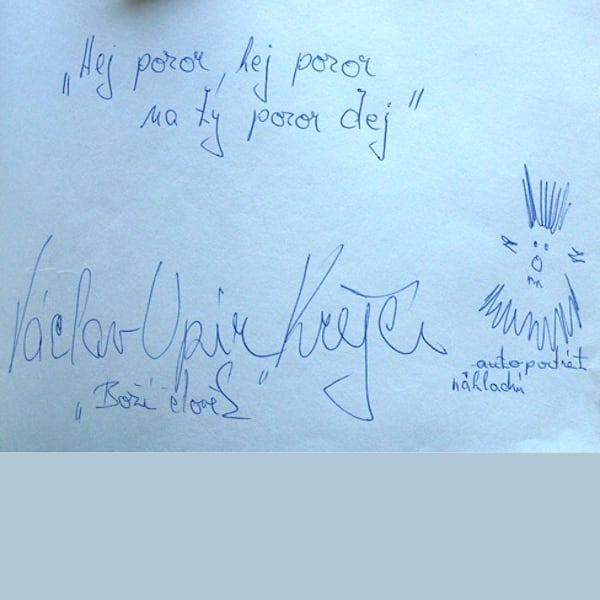 „Hej pozor, hej pozor
na tý pozor dej"
Václav Upír Krejčí
„Boží člověč"
autoportrét
náhladní